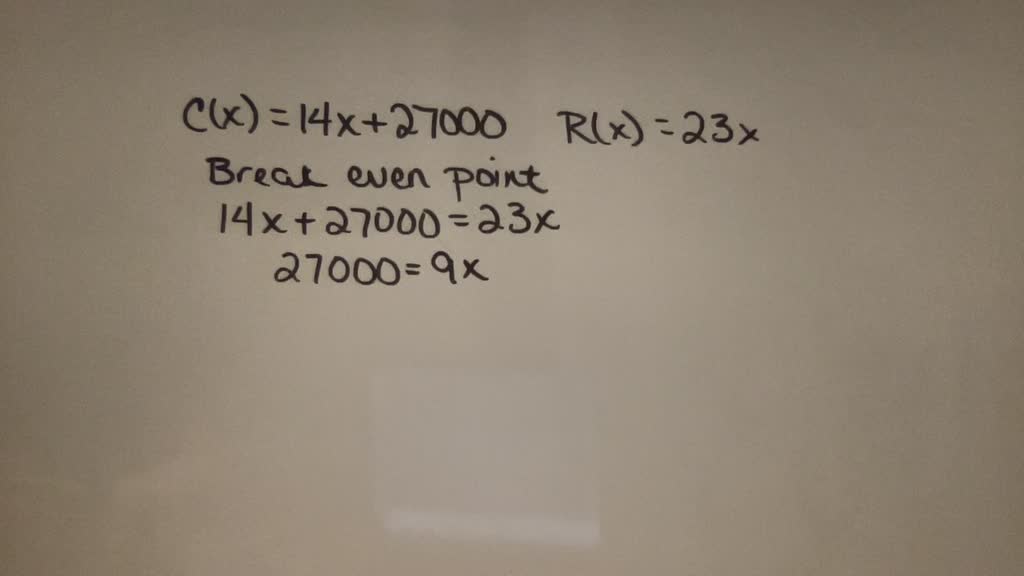 C(x) = 14x + 27000 R(x) = 23x
Break even point
14x + 27000 = 23x
27000 = 9x